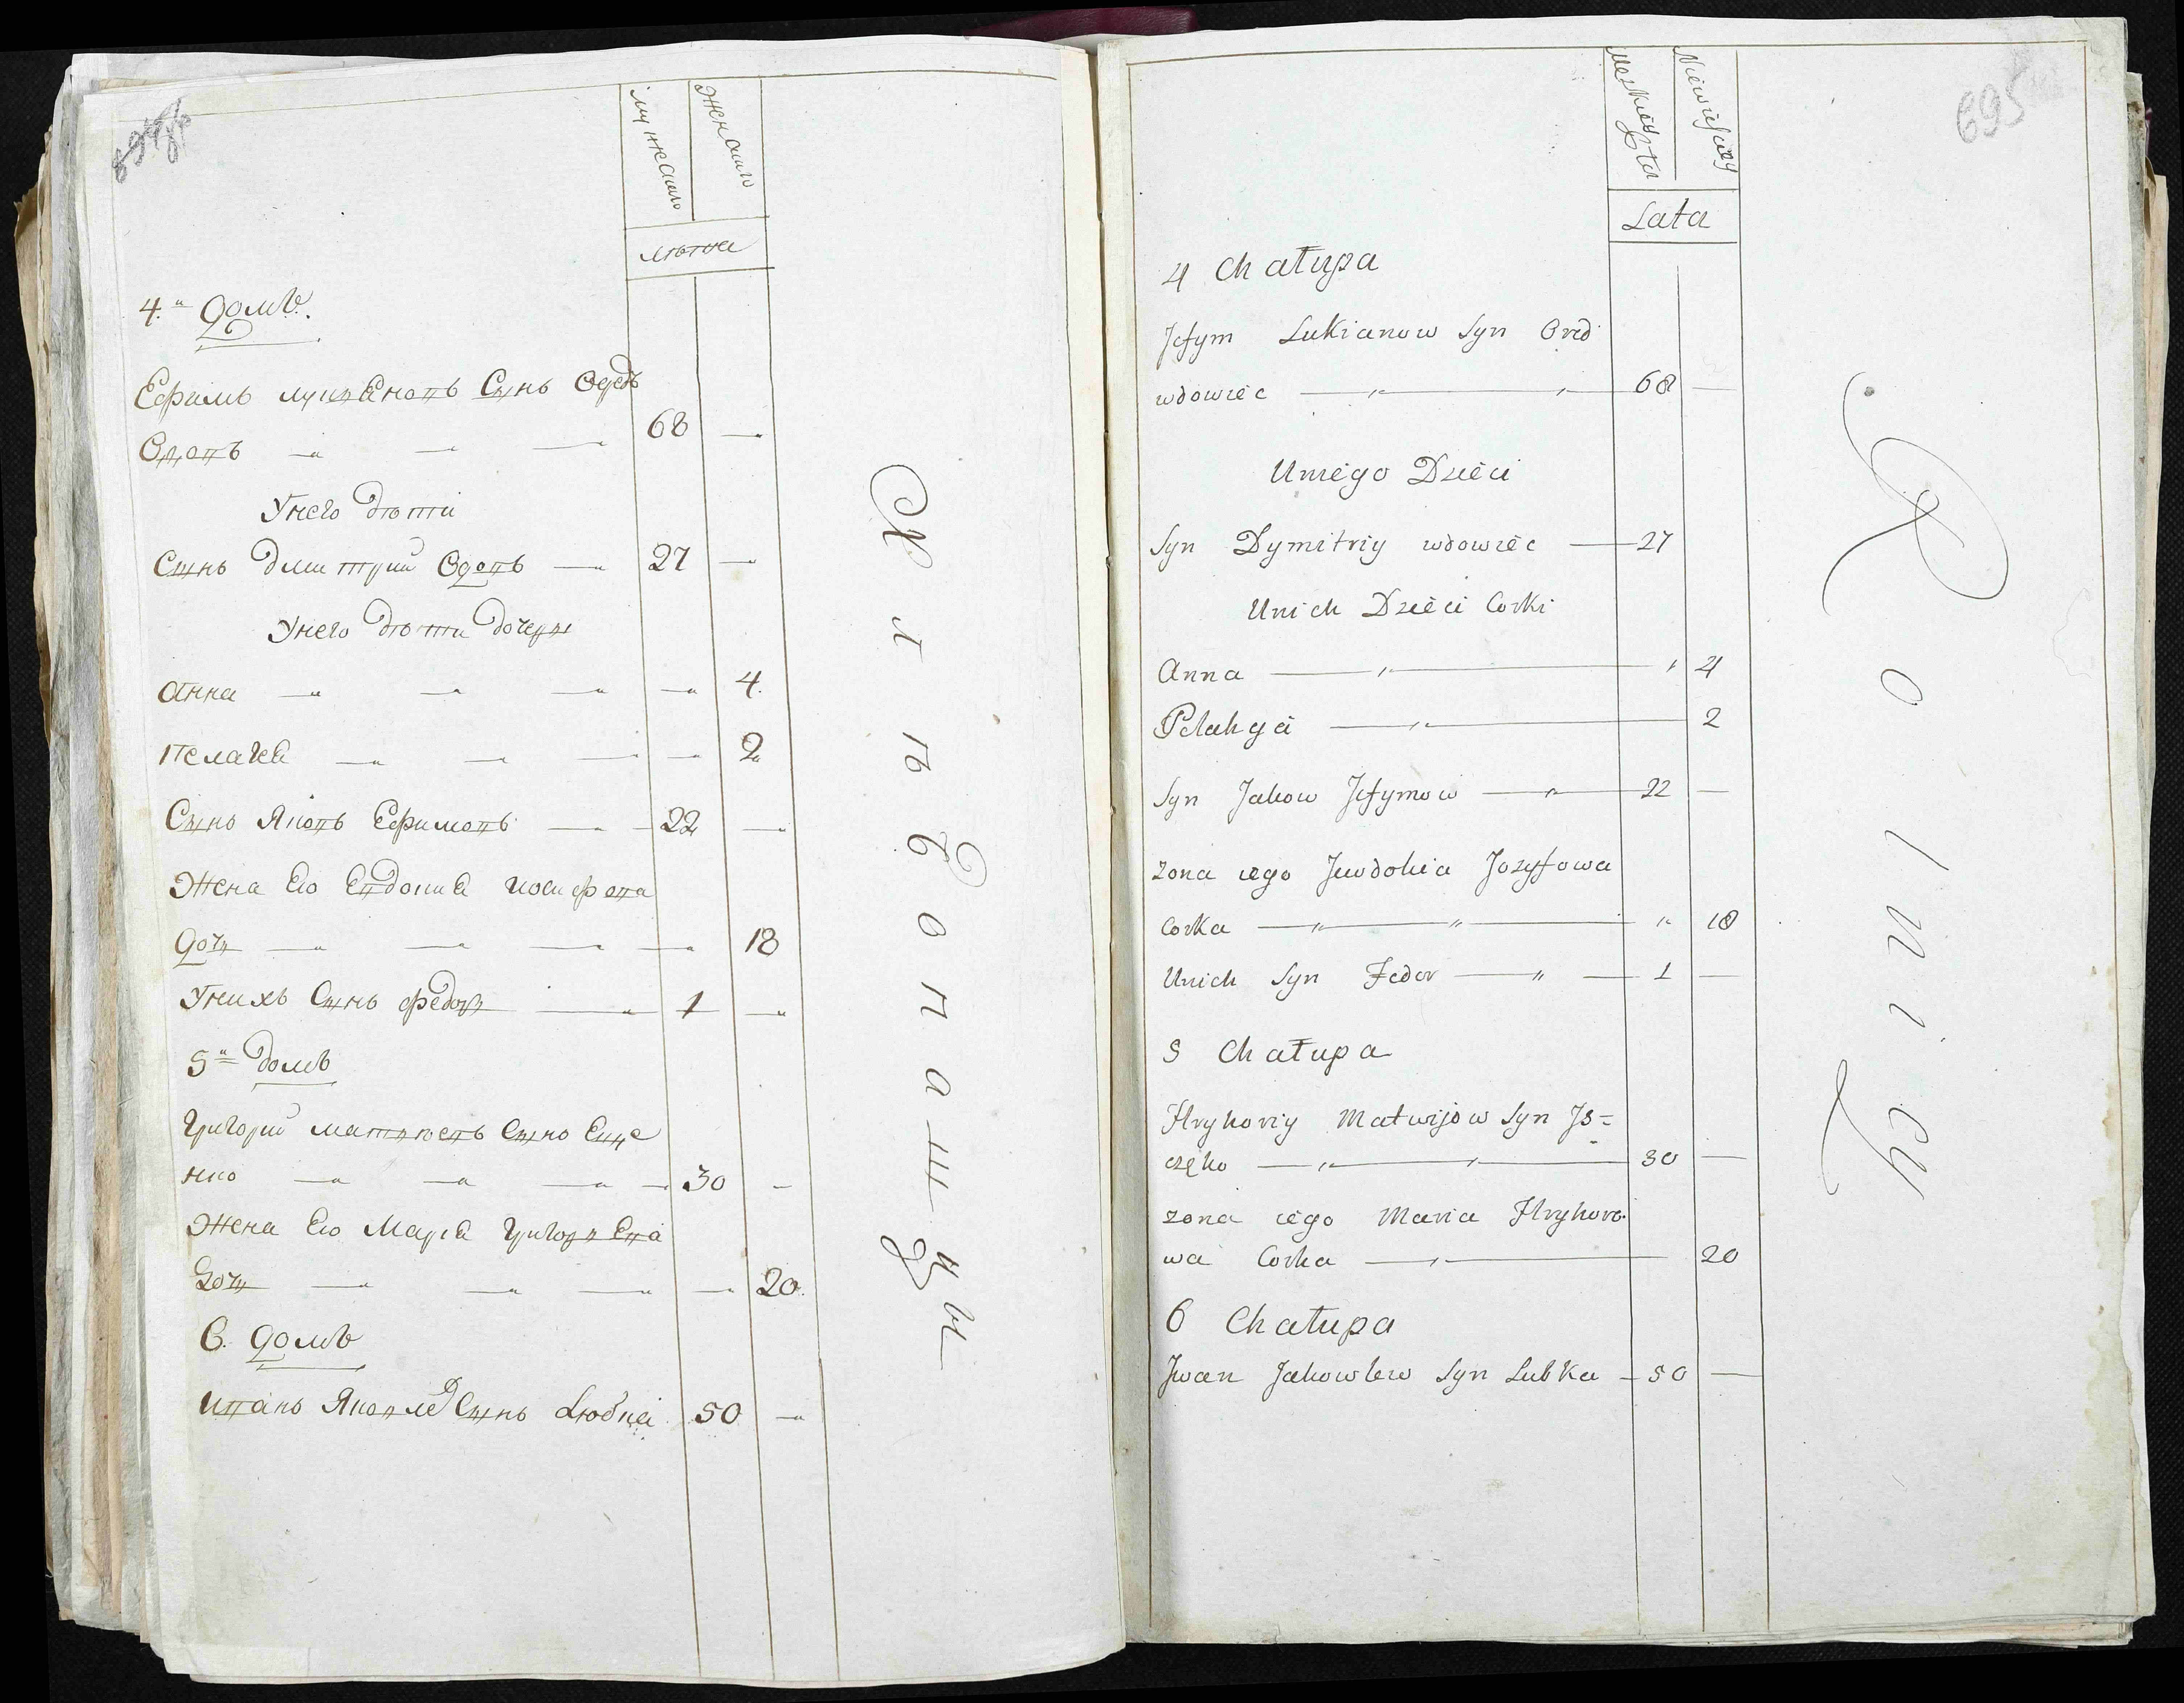 мужеска
женска
лѣта
4.й домъ.
Ефимъ лукиановъ Сынъ Оредъ
вдовъ 68 —
Унего дѣти
Сынъ дмитрий вдовъ — 27 —
Унего дѣти дочери
анна — — — — 4.
пелагея — — — — 2
Сынъ Яковъ Ефимовъ — 22 —
Жена Его Евдокия иосифова
дочь — — — — 18
Унихъ Сынъ федоръ — 1 —
5й домъ
григорий матвѣевъ Сынъ Еще
нко — — — — 30 -
Жена Его Мария григориева
дочь — — — — 20.
6. домъ
иванъ Яковлевъ Сынъ Любка 50 —
Хлѣбопашцы
695
Męskiego
Niewieściey
Lata
4 Chałupa
Jefym Lukianow Syn Ored
wdowiec — 68 —
Uniego Dzieci
Syn Dymitriy wdowiec — 27
Unich Dzieci Corki
Anna — 4
Pelahya — 2
Syn Jakow Jefymow — 22 —
zona iego Jewdokia Jozyfowa
Corka — 18
Unich Syn Fedor — 1 —
5 Chałupa
Hryhoriy Matwijow Syn Js=
częko — 30 —
zona iego Maria Hryhoro
wa Corka — 20
6 Chałupa
Jwan Jakowlew Syn Lubka — 50 —
Rolnicy